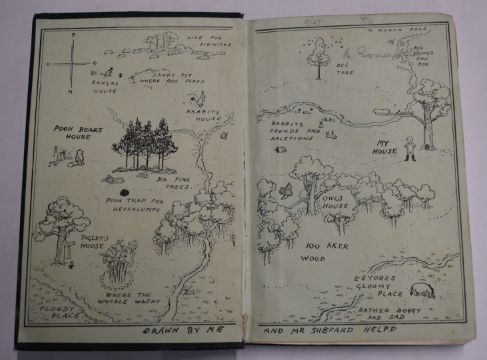 NICE FOR
PIKNICKS
P
KANGAS
HOUSE
SANDY PIT
WHERE ROO PLAYS
RABBITS
HOUSE
POOH BEARS
HOUSE
SIX PINE
TREES
POOH TRAP FOR
HEFFALUMPS
PIGLETS
HOUSE
WHERE THE
WOOZLE WASNT
FLOODY
PLACE
DRAWN BY ME
TO NORTH POLE
BEE
TREE
BIG
STONES
AND
ROX
RABBITS
FRENDS AND
RALETIONS
MY
HOUSE
OWLS
HOUSE
100 AKER
WOOD
EEYORES
GLOOMY
PLACE
RATHER BOGGY
AND SAD
AND MR SHEPARD HELPD